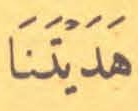 هَدَيْتَنَا